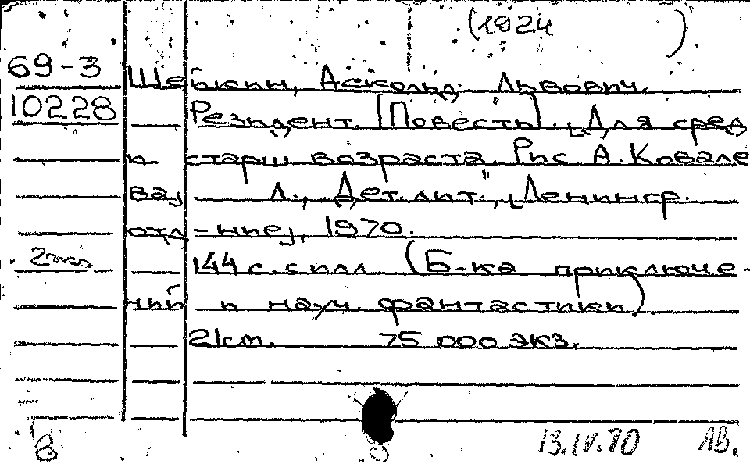 (1924 )
69-3 Шейкин, Аскольд Львович.
10228 Резидент. [Повесть]. [Для сред
и старш возраста. Рис А. Ковале
ва] Л., "Дет. лит.", [Ленингр.
отд-ние], 1970.
144 с. с илл (Б-ка приключе-
ний и науч. фантастики)
21 см. 75 000 экз.
13.IV.70 ЛВ.